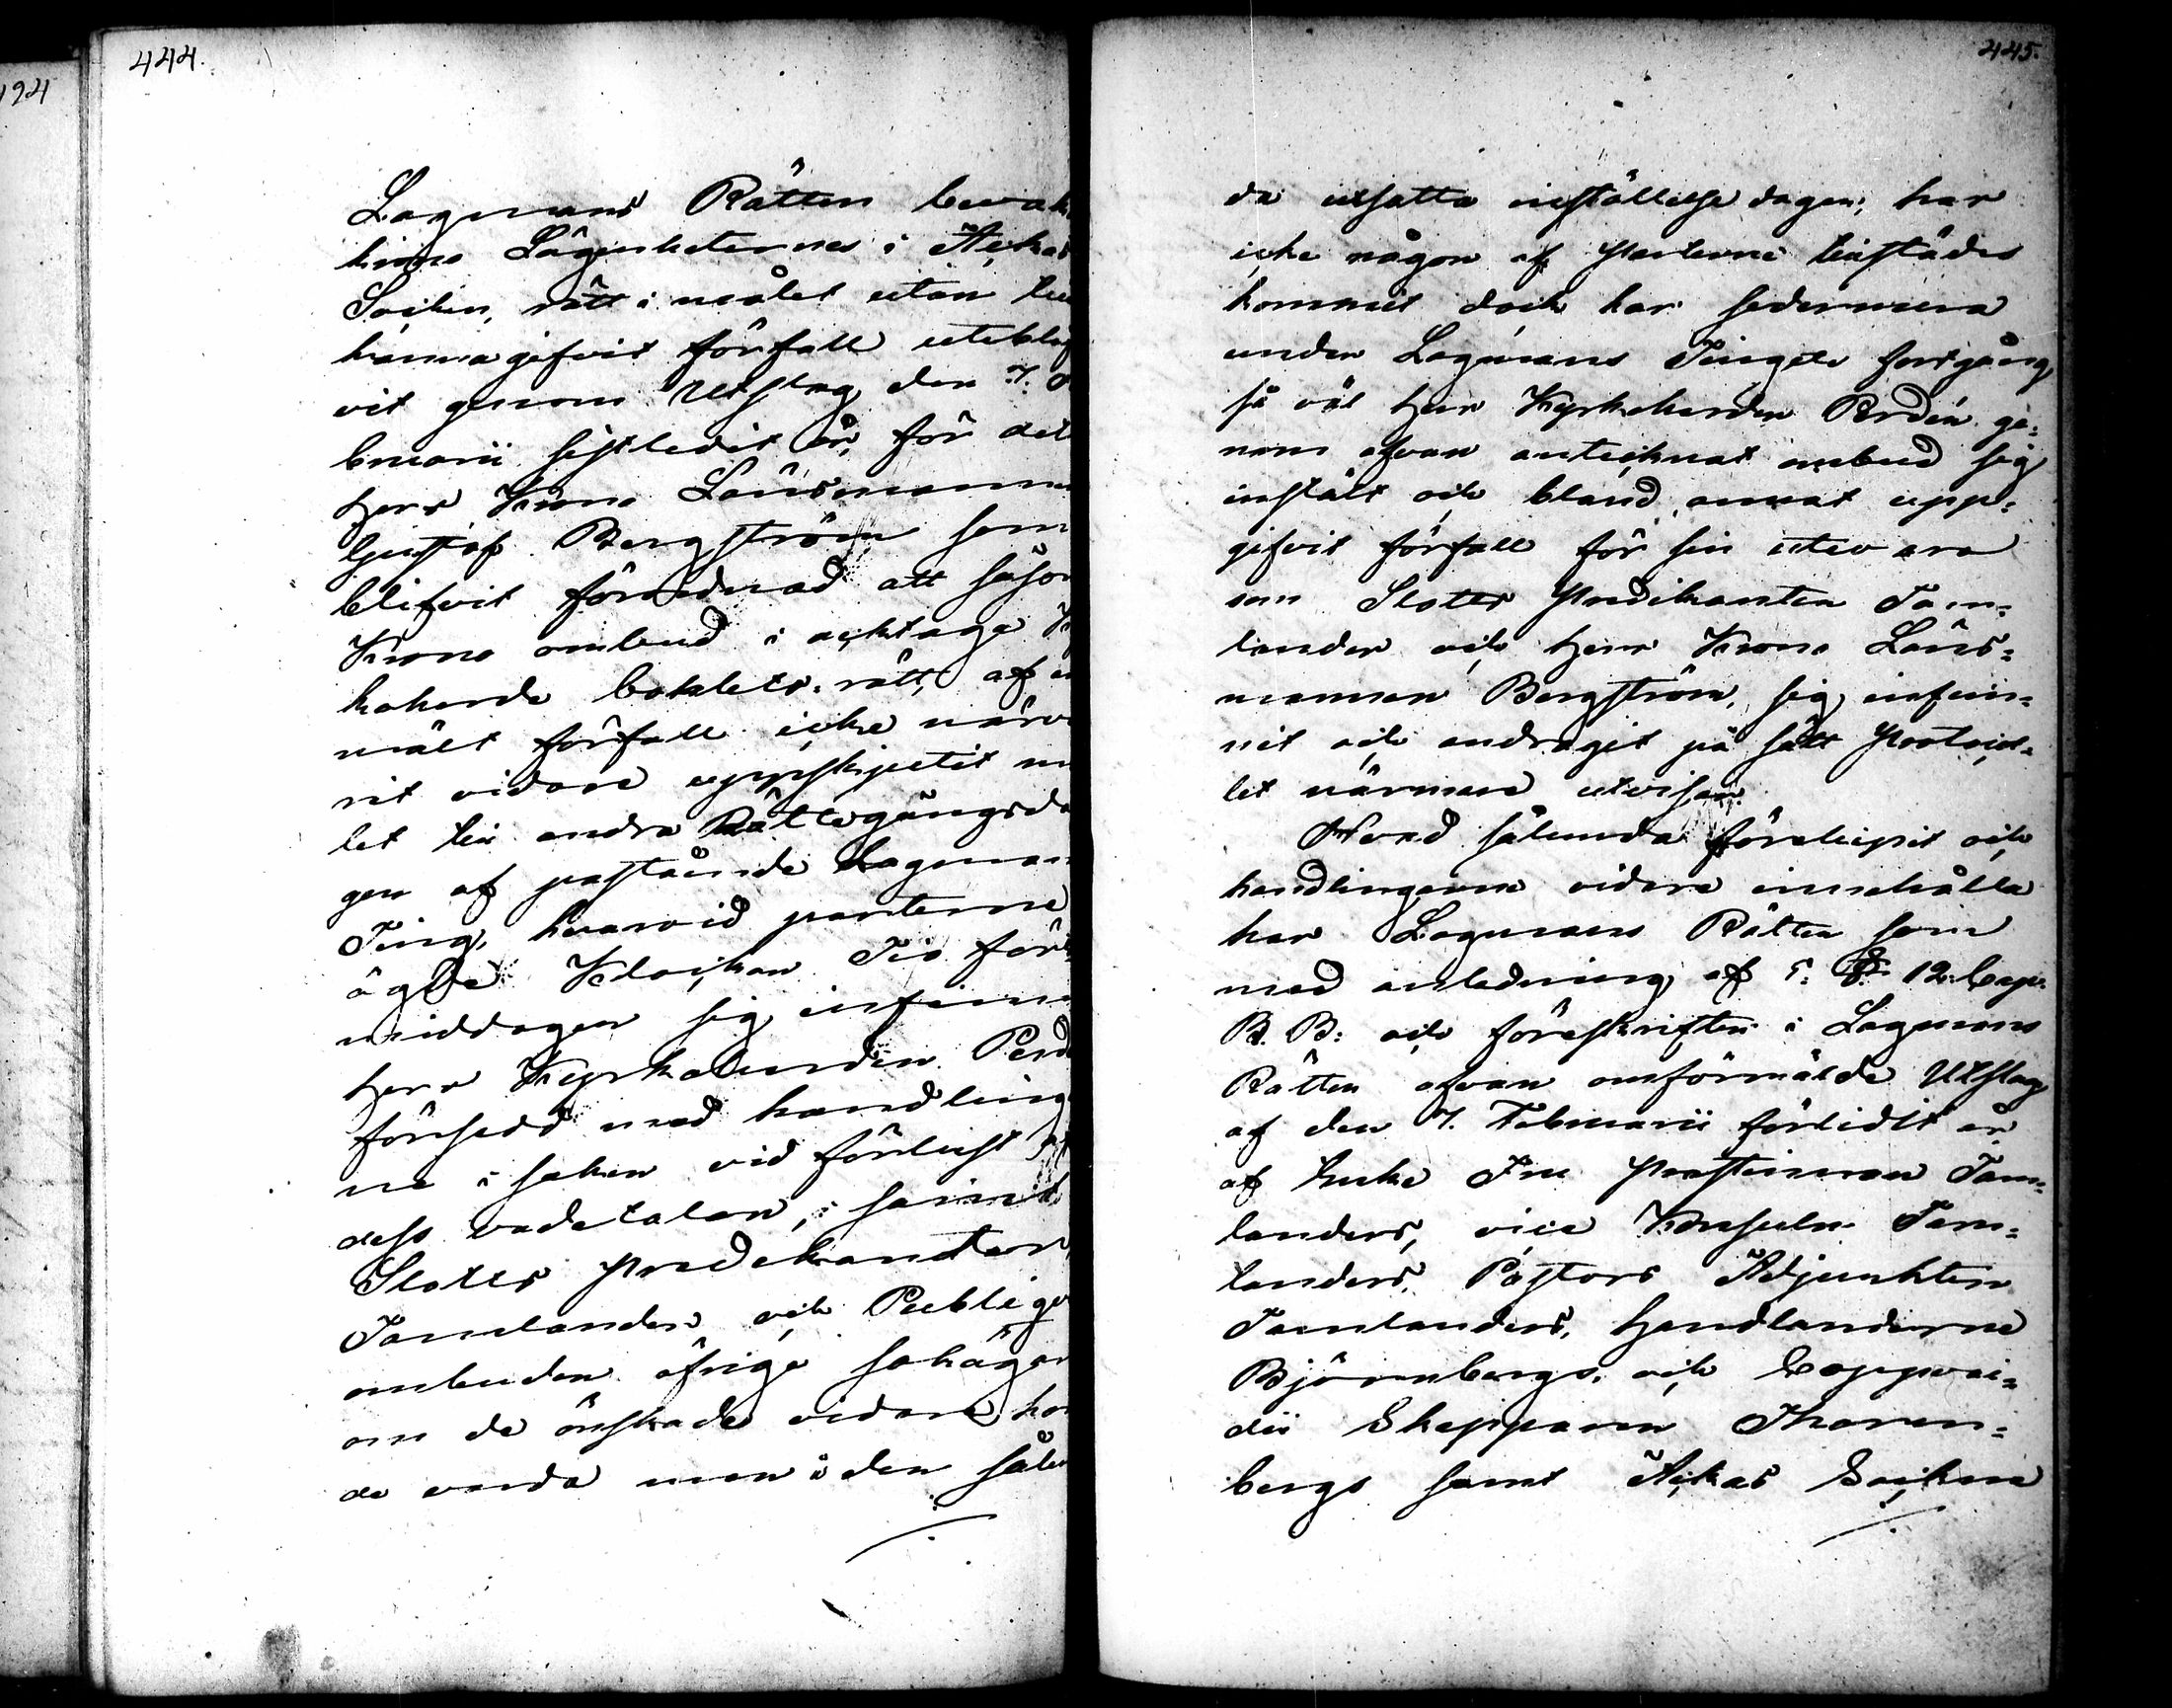 444.
194
Lagmans Rätten bevak
krono Lägenheternes i Ackas
Socken, rätt i målet utan till
känna gifvit förfall utebli
vit genom Utslag den 7. 
bruarii sistledit år, för det
Herr Krono Länsmannen
Gustaf Bergström som
blifvit förordnad att såsom
Krono ombud i acktaga
bohlets rätt, af
mält förfall icke närva
rit vidare uppskjutit må
let till andra Rättegångsda
gen af påstående Lagmans
Ting, hvarvid parterne
ägde Klockan Tio för
middagen sig infinna
Herr Kyrkoherden Perd
försedd med handling
ne i saken vid förlust af
dess vadetalan, samt
Slotts Predikanten
Tamlander och Publiqe
ombuden öfrige sakägar
om de önskade vidare hör
de varda men å den sålun
445.
da utsatta inställelse dagen, har
icke någon af Parterne tillstädes
kommit dock har sedermera
under Lagmans Tingets fortgång
så väl Herr Kyrkoherden Perdén ge=
nom ofvan antecknat ombud sig
instält och bland annat upp=
gifvit förfall för sin utevaro
som Slotts Predikanten Tam=
lander och Herr Krono Läns=
mannen Bergström, sig infun=
nit och andragit på sätt Protocol=
let närmare utvisar.
Hvad sålunda förelupit och
handlingarne vidare innehålla
har Lagmans Rätten som
med anledning af 5. §. 12. Cap.
R. B: och föreskriften i Lagmans
Rätten ofvan omförmälde Utslag
af den 7. Februarii förledit år
af Enke Fru Prostinnan Tam=
landers, vice Konsuln Tam=
landers, Pastors Adjunkten
Tamlanders, Handlanderne
Björnbergs, och Coppoi=
dii Skepparen Thoren=
bergs samt Ackas Sockne